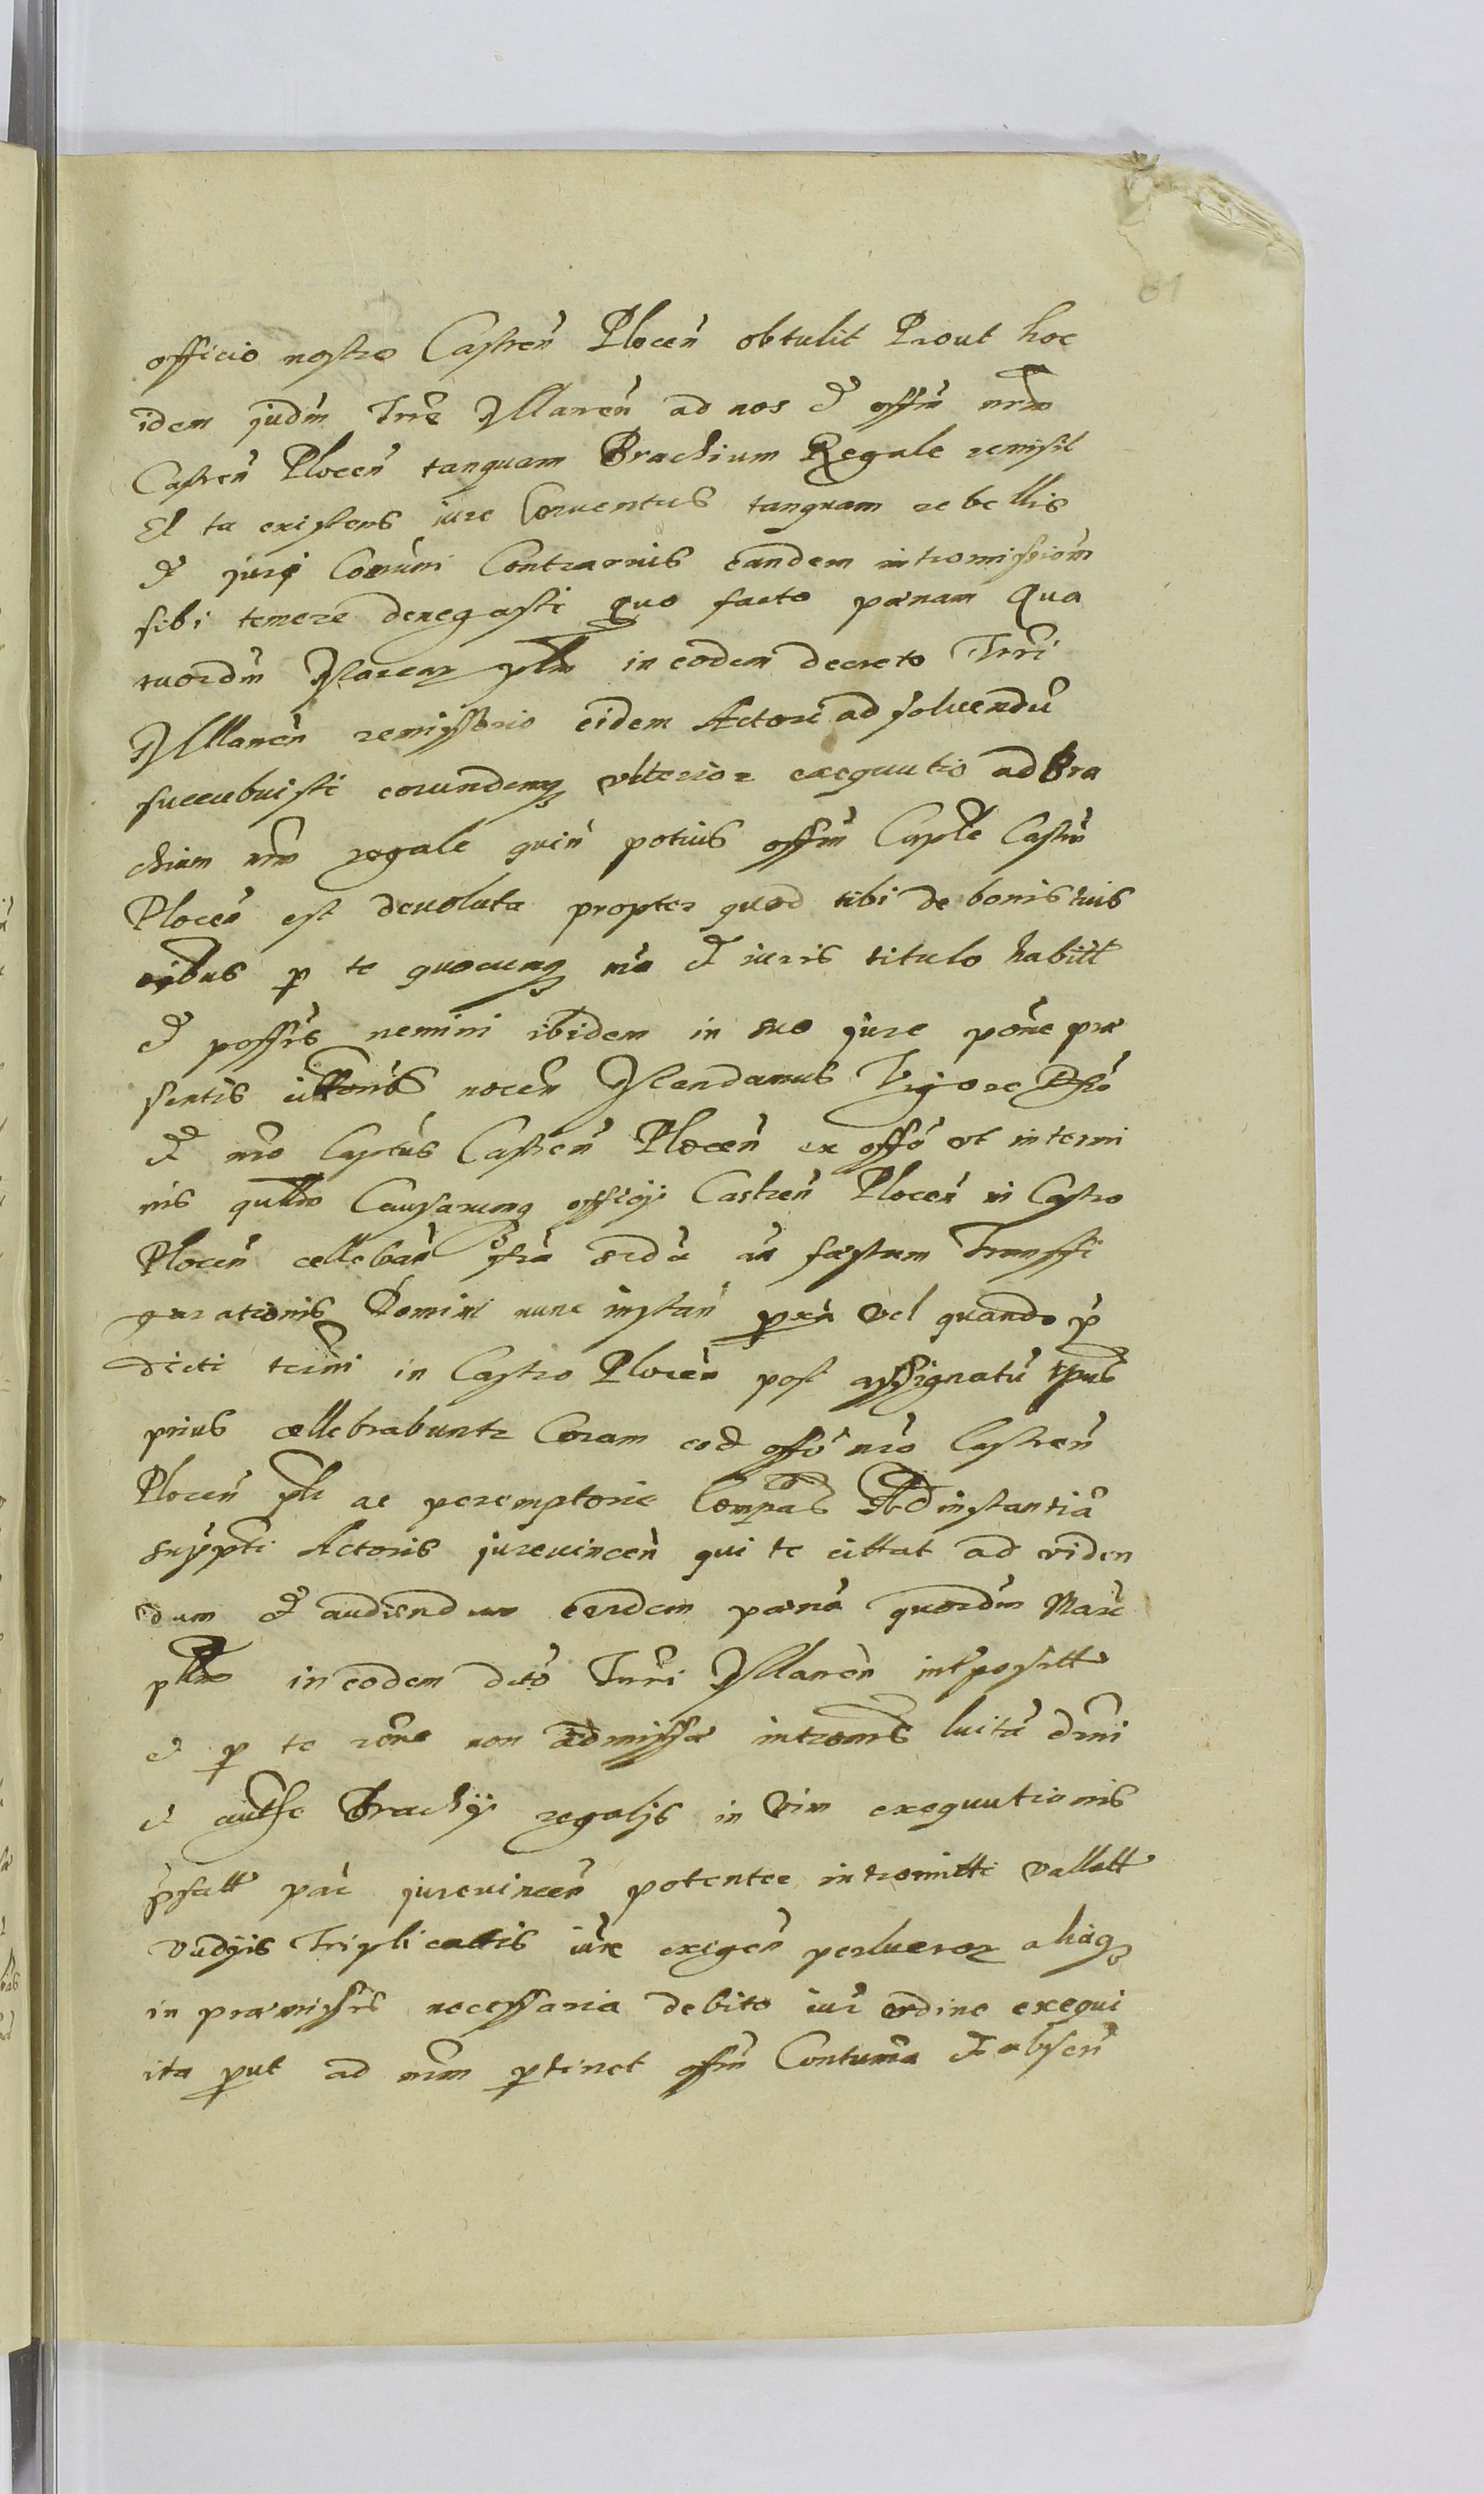 61
officio nostro Castren̄ Plocen̄ obtulit Prout hoc
idem judm̄ Trre Mlaven̄ ad nos et offm̄ nrm̄
Castren̄ Plocen̄ tanquam Brachium Regale remisit
Et tu existens iure Conventus tanquam rebellis
et juri Com̄uni Contrarius eandem intromissiom̄
sibi temere denegasti quo facto pœnam Qua
tuordm̄ Marcar in eodem decreto Trri
Mlaven̄ remissorio eidem Actori ad soluendū
succubuisti eorundemq ulterior exequutio ad Bra
chium nrm̄ regale quin̄ potius offm̄ Caple Castrn̄
Plocen̄ est devoluta propter quod tibi de bonis tuis
oibus p te quocunq et iuris titulo habitt
et possis̄ nemini ibidem in suo jure pōne præ
sentis nocen̄ Mandamus Vigore
et nro Captus̄ Castren̄ Plocen̄ ex offo ut in termi
nis Causarumq officij Castren̄ Plocen̄ in Castro
Plocen̄ cellebran̄ an festum Transffi
gurationis Domini nunc instan̄ vel quando p̄
dicti term̄i in Castro Plocen̄ post assignatū tpus
prius cellebrabuntr Coram eod offo nro Castren̄
Plocen̄ plr ac peremptorie Compas Ad instantiā
supp̄ti Actoris jurevincen̄ qui te cittat ad viden
dum et audiendum eandem pœnā quordm̄ Marc
in eodem dcto Trri Mlaven̄ intposittæ
et p te rōne non admissæ intromis luitā
et Brachij regalis in vim exequutionis
jurevincen̄ potenter intromitti vallatt
vadijs Triplicatis iure exigen̄ aliaq
in præmissis necessaria debito iur̄ ordine exequi
ita put ad nrm̄ ptinet offm̄ Contuma et absen̄